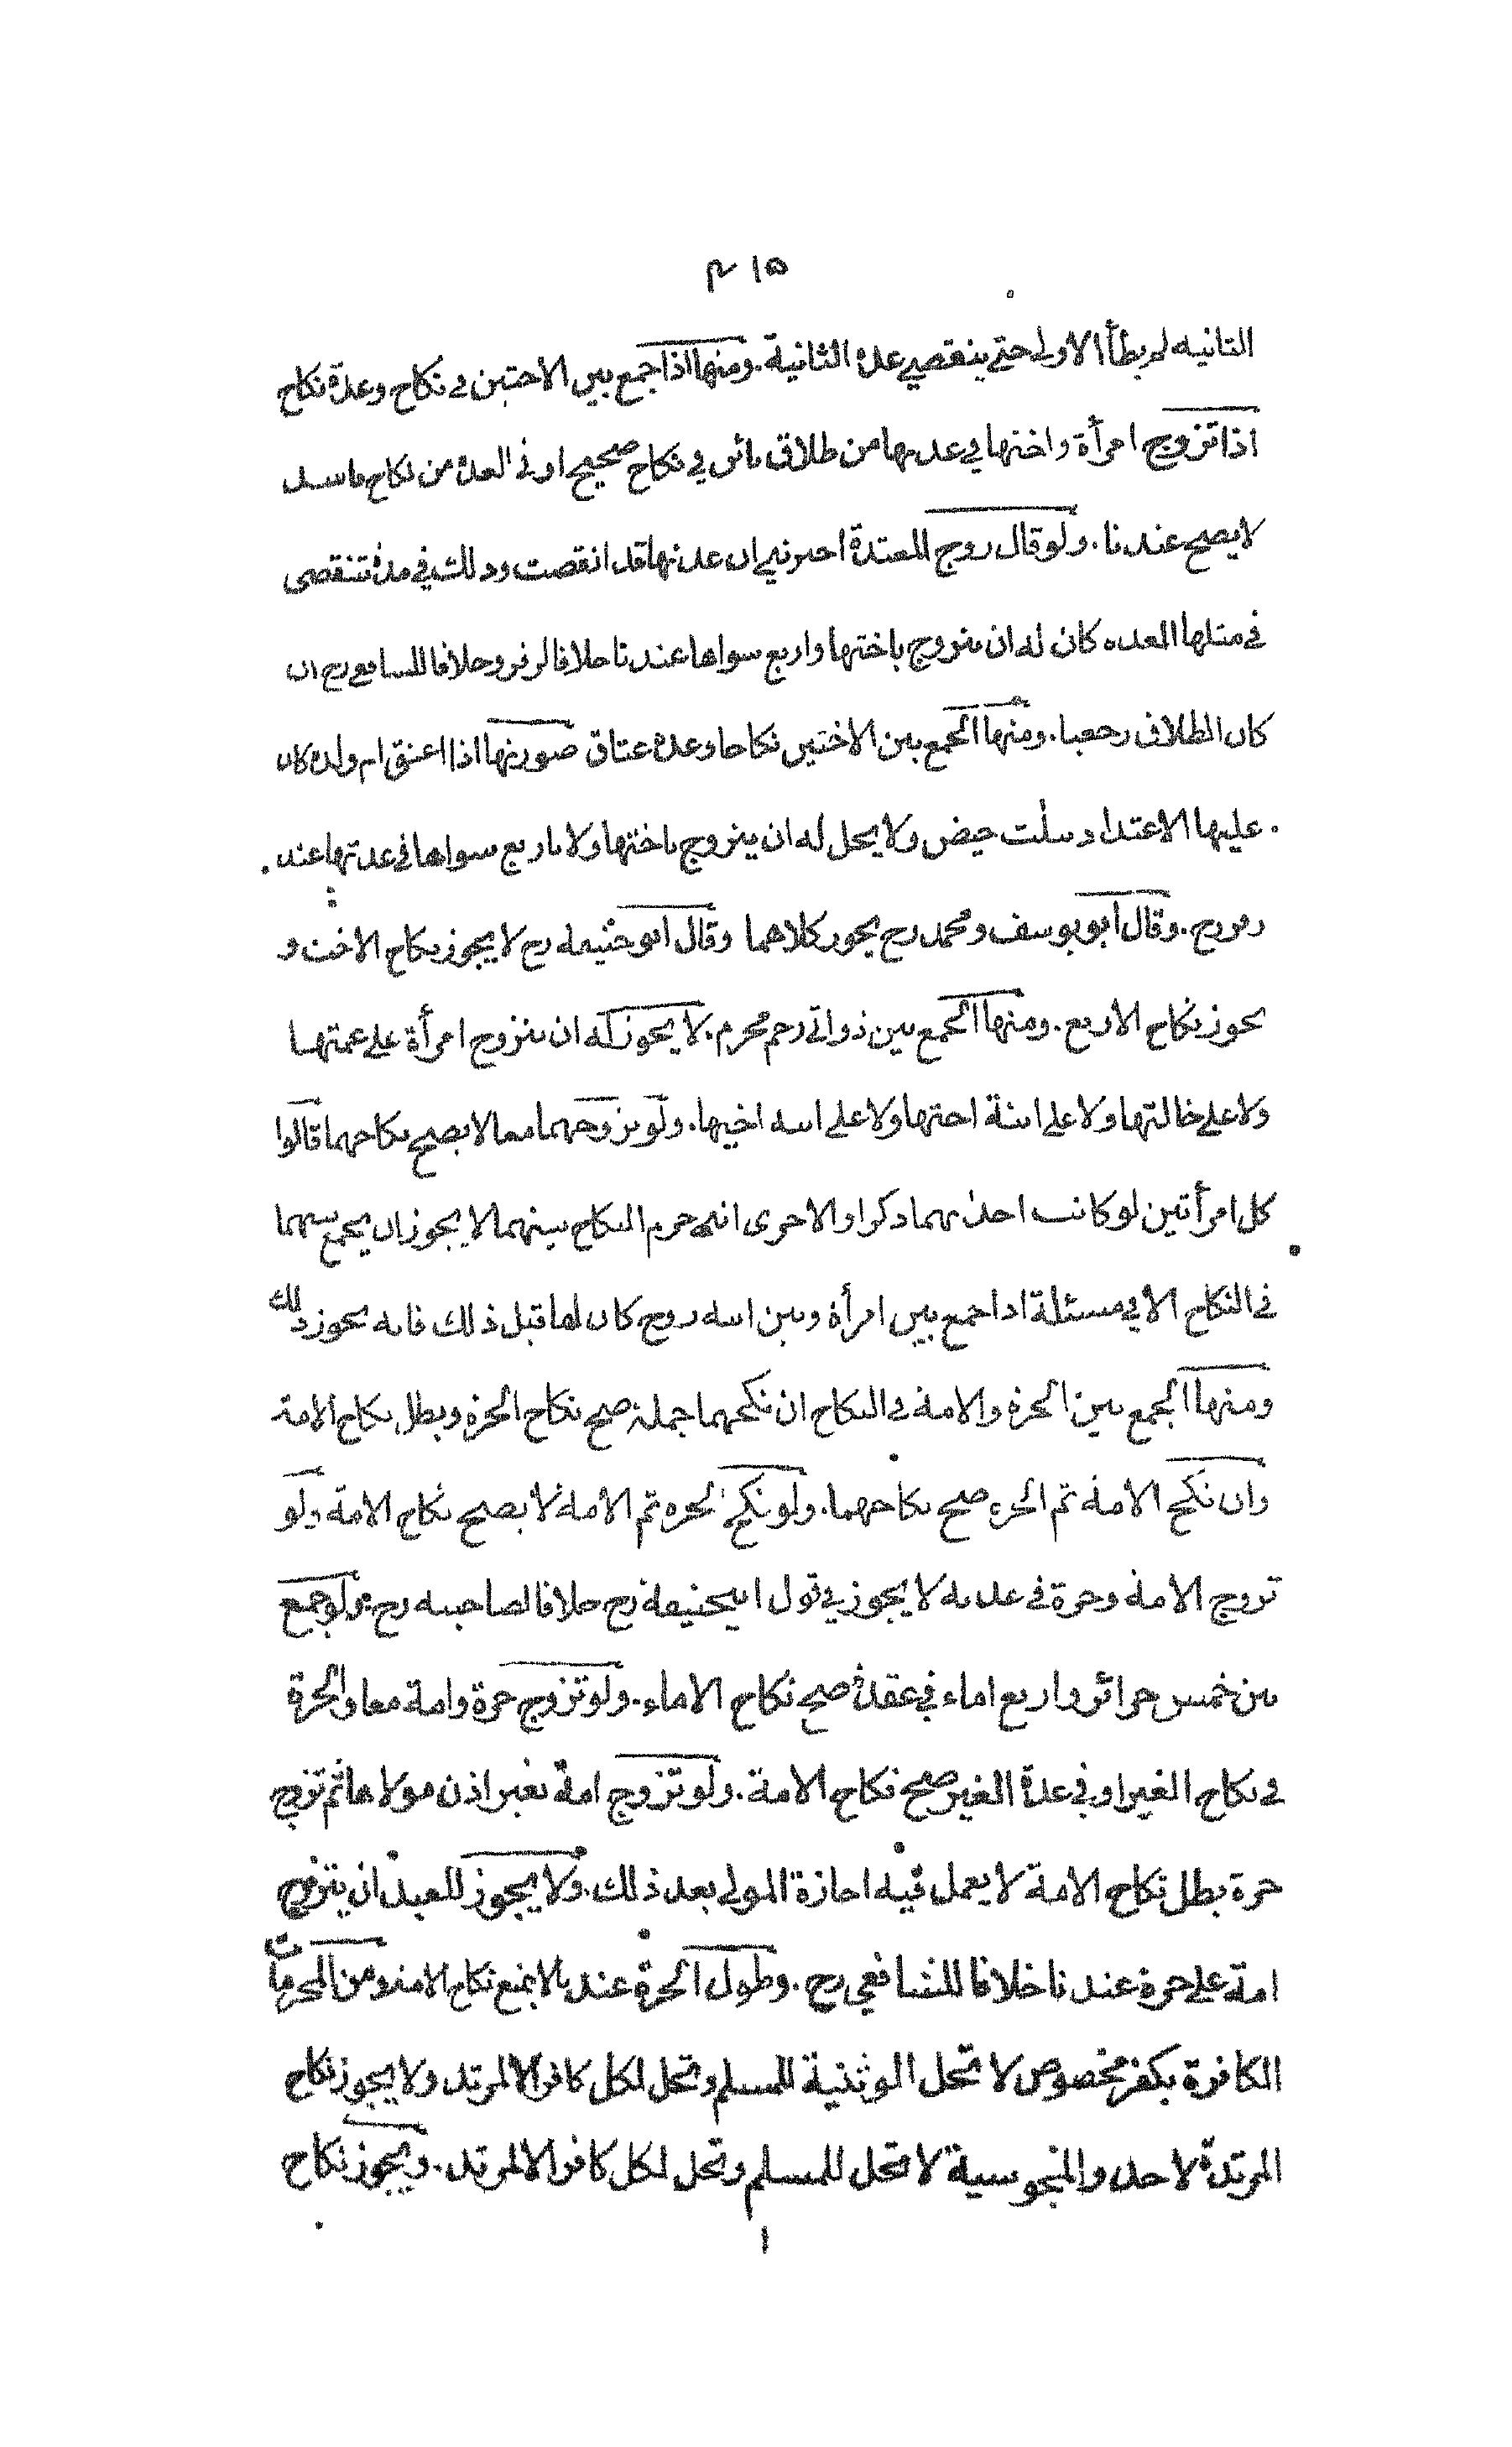 ١٥ م
الثانيه لم يطأ الاولى حتى ينقصي عدة الثانية. ومنها اذا جمع بين الاختين في نكاح وعدة نكاح
اذا تزوج امرأة واختها في عدتها من طلاق بائن في نكاح صحيح او في العدة من نكاح فاسد
لا يصح عندنا. ولو قال زوج المعتدة اخبرني ان عدتها قد انقضت وذلك في مدة تنقضى
في مثلها العده كان له ان يتزوج باختها واربع سواها عندنا خلافا لزفر وخلافا للشافعي رح ان
كان الطلاق رجعيا. ومنها الجمع بين الاختين نكاحا وعدة عتاق صورتها اذا اعتق ام ولده كان
عليها الاعتداد بثلث حيض ولا يحل له ان يتزوج باختها ولا باربع سواها في عدتها عند
زفر رح. وقال ابو يوسف ومحمد رح يجوز كلاهما وقال ابو حنيفه رح لا يجوز نكاح الاخت و
يجوز نكاح الاربع. ومنها الجمع بين ذواتي رحم محرم. لا يجوز له ان يتزوج امرأة على عمتها
ولا على خالتها ولا على ابنة اختها ولا على ابنه اخيها. ولو تزوجهما معا لا يصح نكاحهما قالوا
كل امرأتين لو كانت احدىهما ذكرا والاخرى انثى حرم النكاح بينهما لا يجوز ان يجمع بينهما
في النكاح الا في مسئلة اذا جمع بين امرأة وبين ابنه زوج كان لها قبل ذلك فانه يجوز ذلك
ومنها الجمع بين الحرة والامة في النكاح ان نكحهما جملة صح نكاح الحرة وبطل نكاح الامة
وان نكح الامة ثم الحره صح نكاحهما. ولو نكح الحره ثم الامة لا يصح نكاح الامة ولو
تزوج الامة وحرة في عدته لا يجوز في قول ابيحنيفة رح خلافا لصاحبيه رح ولو جمع
بين خمس حرائر واربع اماء في عقدة صح نكاح الاماء. ولو تزوج حرة وامة معا والحرة
في نكاح الغير او في عدة الغير صح نكاح الامة. ولو تزوج امة بغير اذن مولاها ثم تزوج
حرة بطل نكاح الامة لا يعمل فيه اجازة المولى بعد ذلك. ولا يجوز للعبد ان يتزوج
امة على حرة عندنا خلافا للشافعي رح. وطول الحرة عندنا لا يمنع نكاح الامة ومن المحرمات
الكافرة بكفر مخصوص لا تحل الوثنية للمسلم وتحل لكل كافر الا المرتد ولا يجوز نكاح
المرتدة لاحد والمجوسية لا تحل للمسلم وتحل لكل كافر الا المرتد. ويجوز نكاح
ا